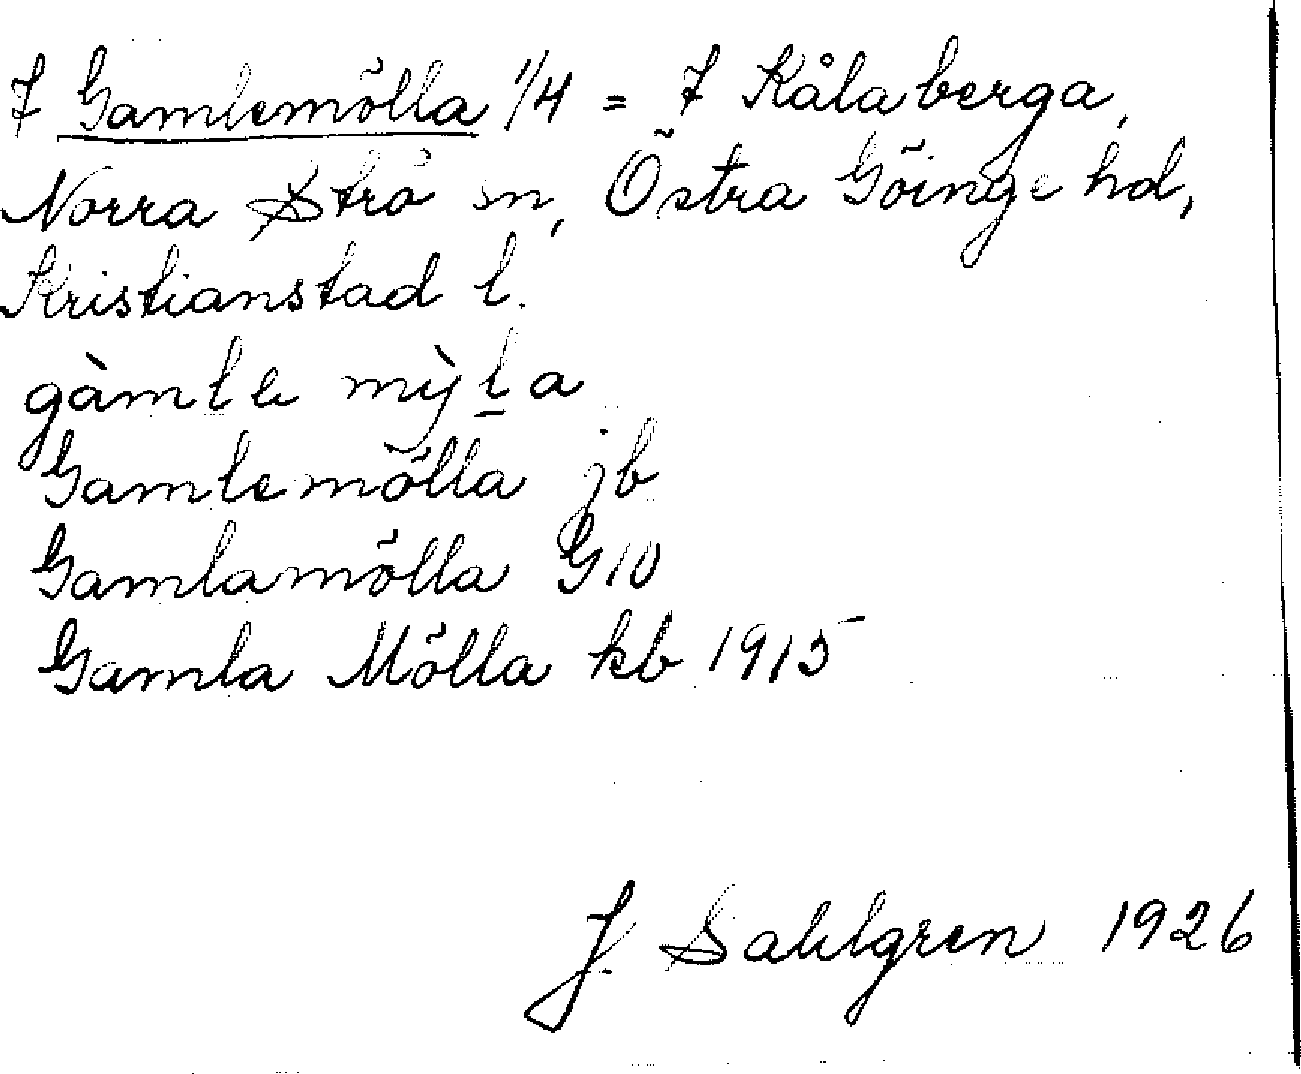 7 Gamlemölla 1/4 = 7 Kålaberga,
Norra Strö sn, Östra Göinge hd,
Kristianstad l.
gàmle mỳl̲a
Gamlemölla jb
Gamlamölla G10
Gamla Mölla kb 1915
J. Sahlgren 1926